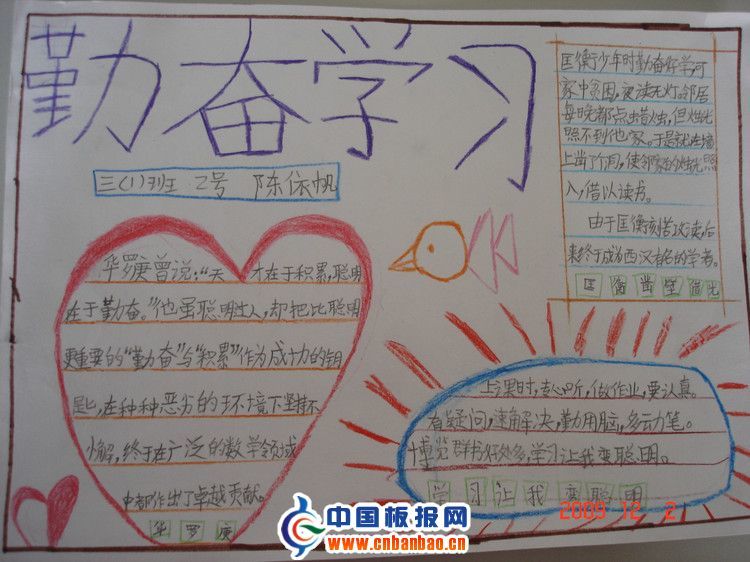 勤奋学习
三(1)班 2号 陈依帆
匡衡少年时勤奋好学,可
家中贫困,夜读无灯,邻居
每晚都点蜡烛,但烛光
照不到他家。于是就在墙
上凿了个洞,使邻家的烛光照
入,借以读书。
由于匡衡刻苦攻读,后
来终于成为西汉有名的学者。
匡衡凿壁借光
华罗庚曾说:“天才在于积累,聪明
在于勤奋。”他虽聪明过人,却把比聪明
更重要的“勤奋”与“积累”作为成功的钥
匙,在种种恶劣的环境下坚持不
懈,终于在广泛的数学领域
中都作出了卓越贡献。
华罗庚
上课时,专心听,做作业,要认真。
有疑问,速解决,勤用脑,多动笔。
博览群书好处多,学习让我变聪明。
学习让我变聪明
2009 12 2
中国板报网
www.cnbanbao.cn